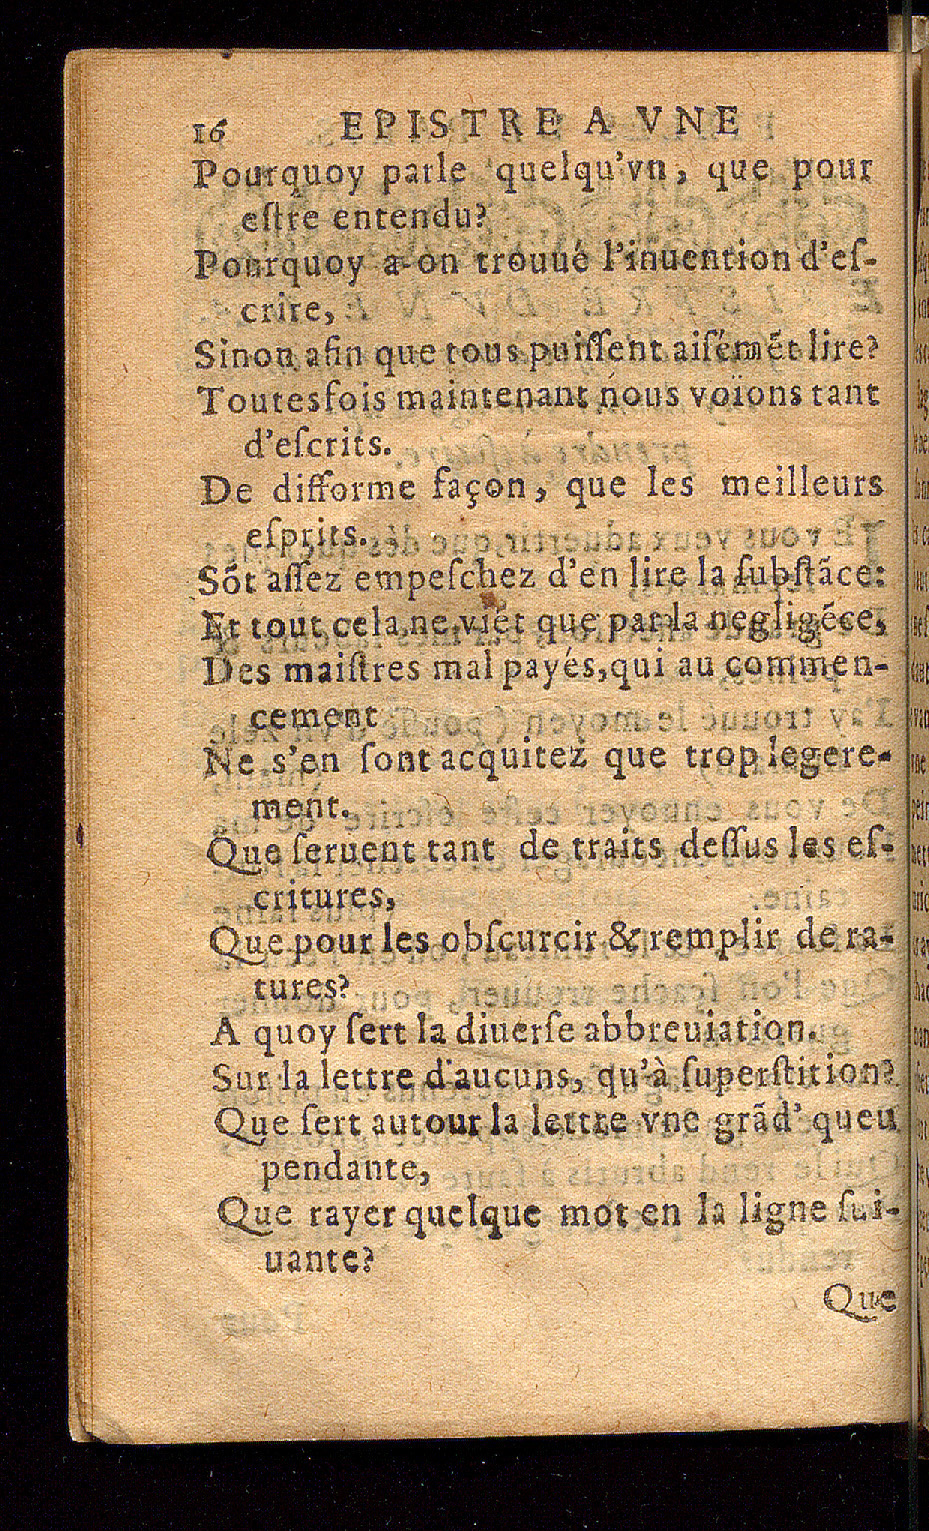 16 EPISTRE A VNE
Pourquoy parle quelqu'vn, que pour
eſtre entendu?
Pourquoy a-on trouué l'inuention d'eſ-
crire,
Sinon afin que tous puiſſent aiſémẽt lire?
Toutesfois maintenant nous voïons tant
d'eſcrits.
De difforme façon, que les meilleurs
eſprits.
Sõt aſſez empeſchez d'en lire la ſubſtãce:
Et tout cela ne viẽt que par la negligẽce,
Des maiſtres mal payés, qui au commen-
cement
Ne s'en ſont acquitez que trop legere-
ment.
Que ſeruent tant de traits deſſus les eſ-
critures,
Que pour les obſcurcir & remplir de ra-
tures?
A quoy ſert la diuerſe abbreuiation.
Sur la lettre d'aucuns, qu'à ſuperſtition?
Que ſert autour la lettre vne grãd' queu
pendante,
Que rayer quelque mot en la ligne ſui-
uante?
Que